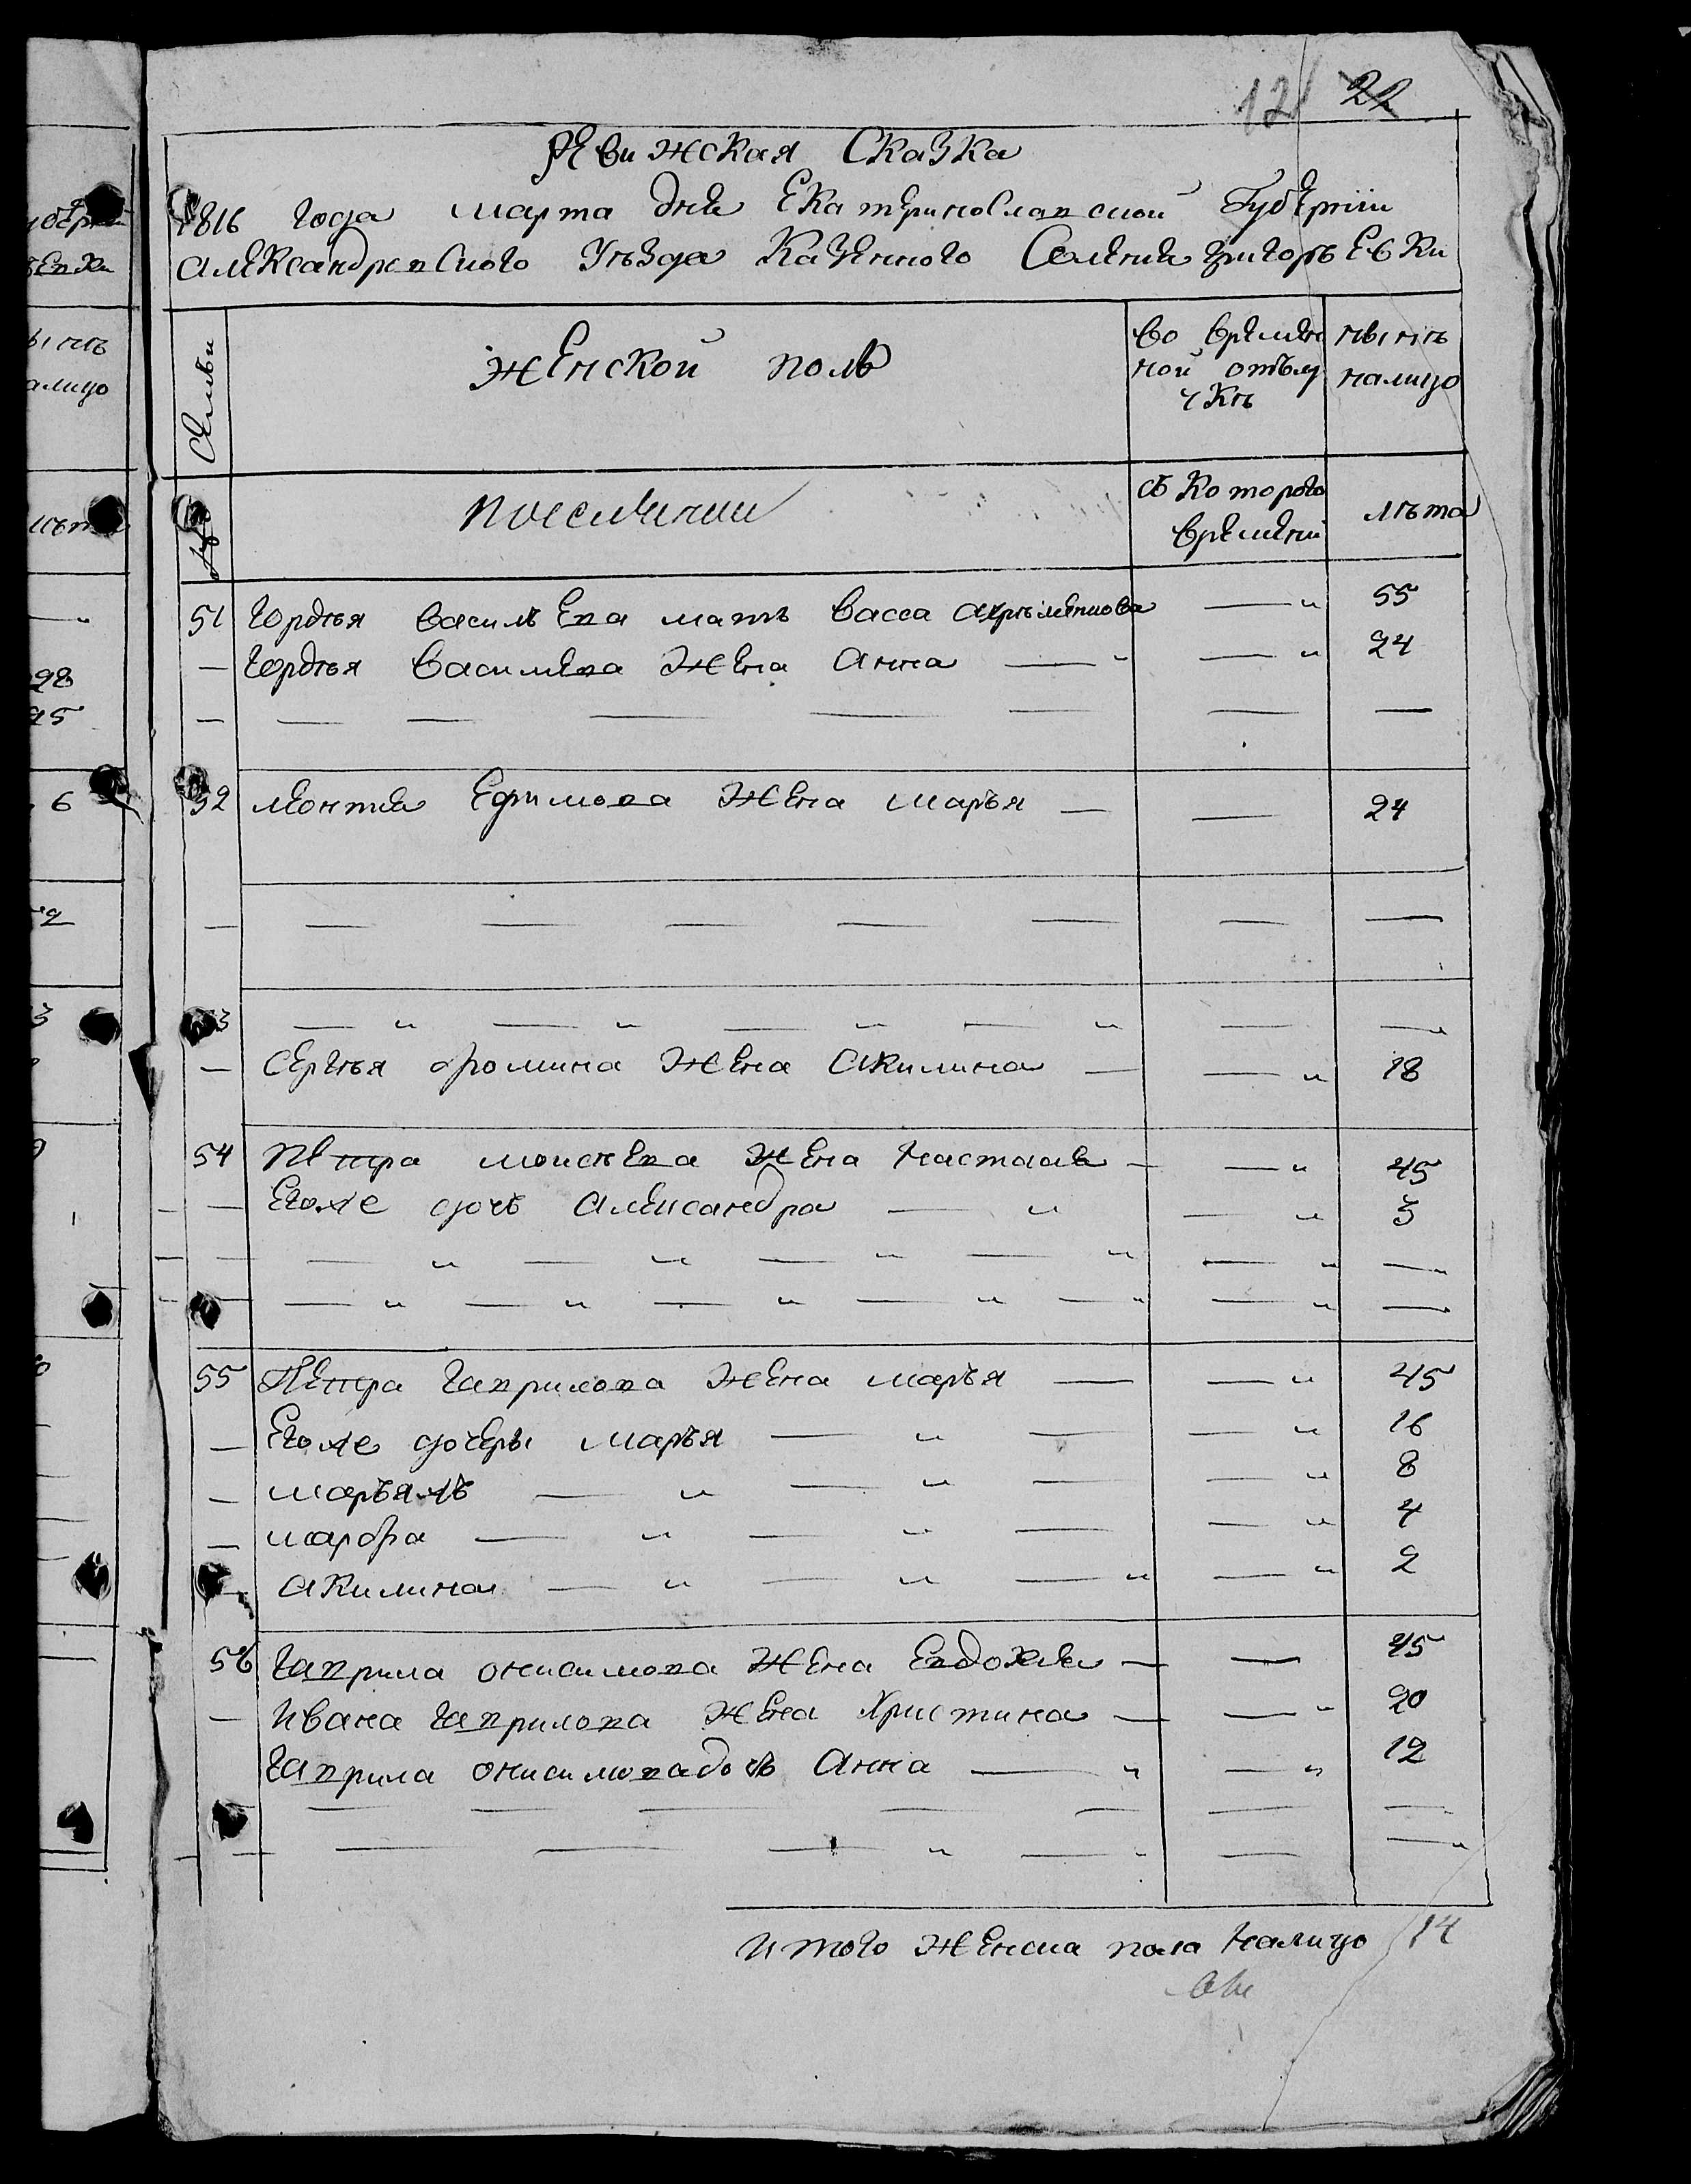 12 22
Ревижская Сказка
1816 года марта дня Екатеринославской Губернии
александровского Уезда Казенного Селения григорьевки
Семьи
женской пол
во времен
ной отлу
чкѣ
нынѣ
налицо
съ которого
времени
лѣта
51 Гордѣя васильева мать васса — " 55
— Гордѣя васильева жена анна — " — " 24
— — — — — — — —
52 леонтия Ефимова жена марья — — 24
— — — — — — — —
53 — " — " — " — " — —
— Сергѣя фомина жена акилина — — " 18
54 Петра моисѣева жена настасия — — " 45
— Егоже дочь александра — " — " 3
— — " — " — " — " — " —
— — " — " — " — " — " — " —
55 Петра гаврилова жена марья — — " 45
— Егоже дочеры марья — " — — " 16
— марья — " — " — — " 8
— марфа — " — " — — " 4
— акилина — " — " — " — " 2
56 гаврила онисимова жена Евдокия — — 45
— ивана гаврилова жена христина — — " 20
гаврила онисимова дочь анна — " — " 12
— — — — — — —
— — — — " — " — — "
итого женска пола налицо 14